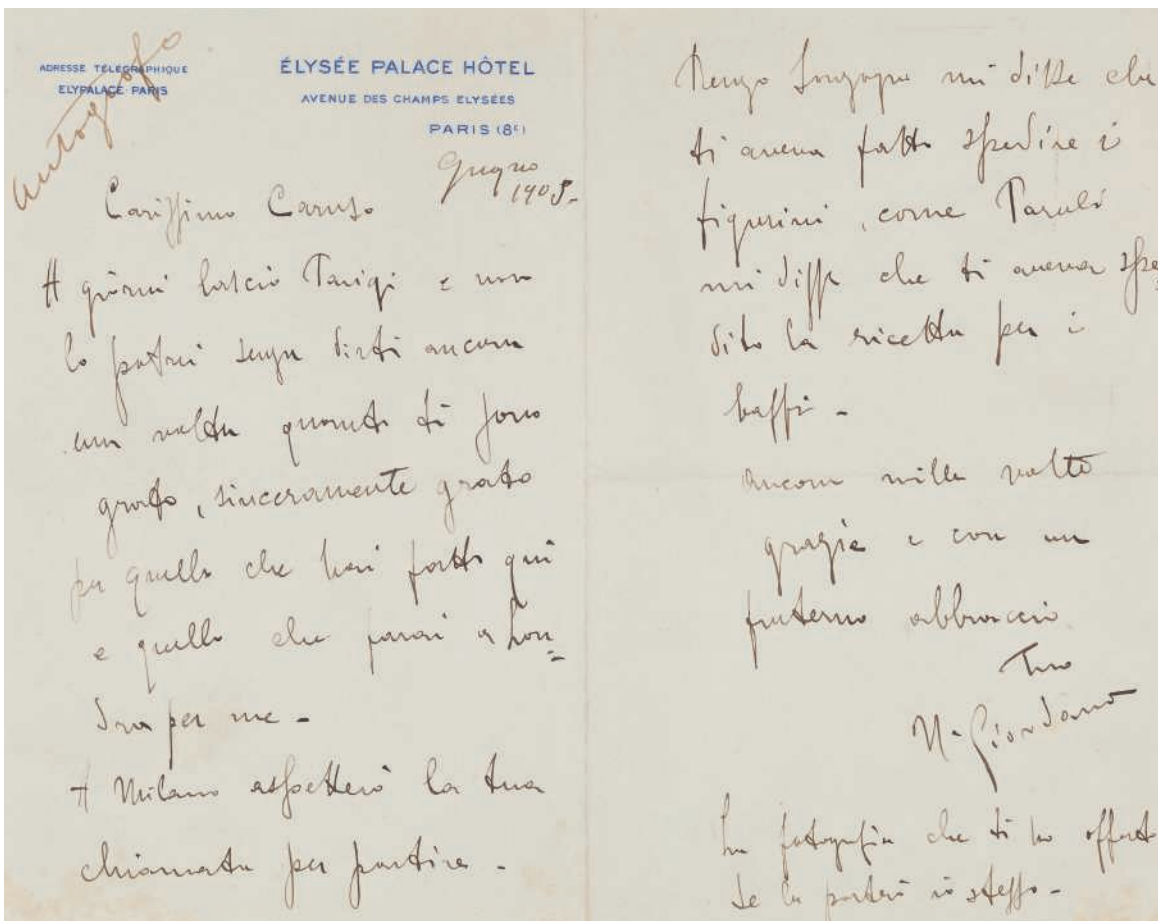 autografo
ADRESSE TÉLÉGRAPHIQUE
ELYPALACE-PARIS
ÉLYSÉE PALACE HÔTEL
AVENUE DES CHAMPS ELYSÉES
PARIS (8e)
Giugno
1905-
Carissimo Caruso
A giorni lascio Parigi e non
lo potrei senza dirti ancora
una volta quanto ti sono
grato, sinceramente grato
per quello che hai fatto qui
e quello che farai a Lon=
dra per me -
A Milano aspetterò la tua
chiamata per partire -
Renzo mi disse che
ti aveva fatto spedire i
figurini, come
mi disse che ti aveva spe-
dito la ricetta per i
baffi -
ancora mille volte
grazie e con un
fraterno abbraccio
Tuo
U. Giordano
La fotografia che ti ho offerto
te la porterò io stesso -